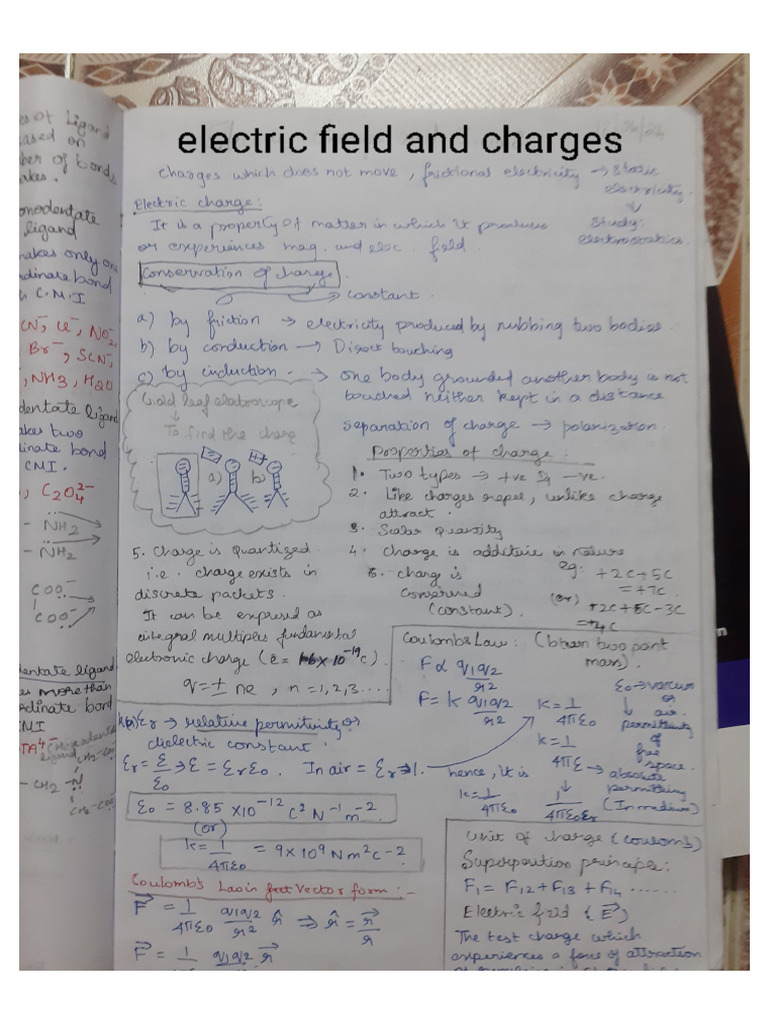 electric field and charges
Charges which does not move, frictional electricity → Static
electricity.
↓
Study:
electrostatics.
Electric charge:
It is a property of matter in which it produces
or experiences mag. and elec. field.
Conservation of charge.
→ constant.
a) by friction → electricity produced by rubbing two bodies.
b) by conduction → Direct touching
c) by induction. → one body grounded another body is not
touched neither kept in a distance
Gold leaf electroscope
↓
To find the charg
a) b)
Separation of charge → polarization.
Properties of charge:
1. Two types → +ve & -ve.
2. Like charges repel, unlike charge
attract.
3. Scalar quantity
4. Charge is additive in nature
eg: +2C+5C
= +7C
(or) +2C+5C-3C
= +4C
5. Charge is quantized.
i.e. charge exists in
discrete packets.
It can be expressed as
integral multiples fundamental
electronic charge (e = 1.6 x 10⁻¹⁹C).
q = ± ne, n = 1,2,3.....
6. charg is
conserved
(constant).
Coulombs Law: (btwn two point
mass).
F ∝ q1q2/r²
F = k q1q2/r²
k = 1/4πε0
k = 1/4πε → absolute
permittivity
(In medium)
ε0 → vacuum
or
air
permittivity
of
free
space.
εr → relative permittivity or
dielectric constant.
εr = ε/ε0 ⇒ ε = εrε0. In air = εr → 1. hence, it is
k = 1/4πε0
1/4πε0εr
ε0 = 8.85 x10⁻¹² C² N⁻¹ m⁻²
(or)
k = 1/4πε0 = 9x10⁹ Nm²C⁻²
Coulomb's Law in vector form:-
F⃗ = 1/4πε0 q1q2/r² r̂ ⇒ r̂ = r⃗/r
F⃗ = 1 q1q2 r⃗
Unit of charge (coulomb)
Superposition principle:
F1 = F12 + F13 + F14 ......
Electric field (E⃗)
The test charge which
experiences a force of attraction
of Ligand
based on
ber of bonds
akes.
onodentate
ligand
makes only one
dinate bond
C.M.I
CN⁻, Cl⁻, NO2⁻,
Br⁻, SCN⁻,
, NH3, H2O
dentate ligand
akes two
dinate bond
CMI.
, C2O4²⁻
- NH2
- NH2
COO⁻
COO⁻
dentate ligand
more than
rdinate bond
MI
TA⁴⁻
ligand
- CH2 - N